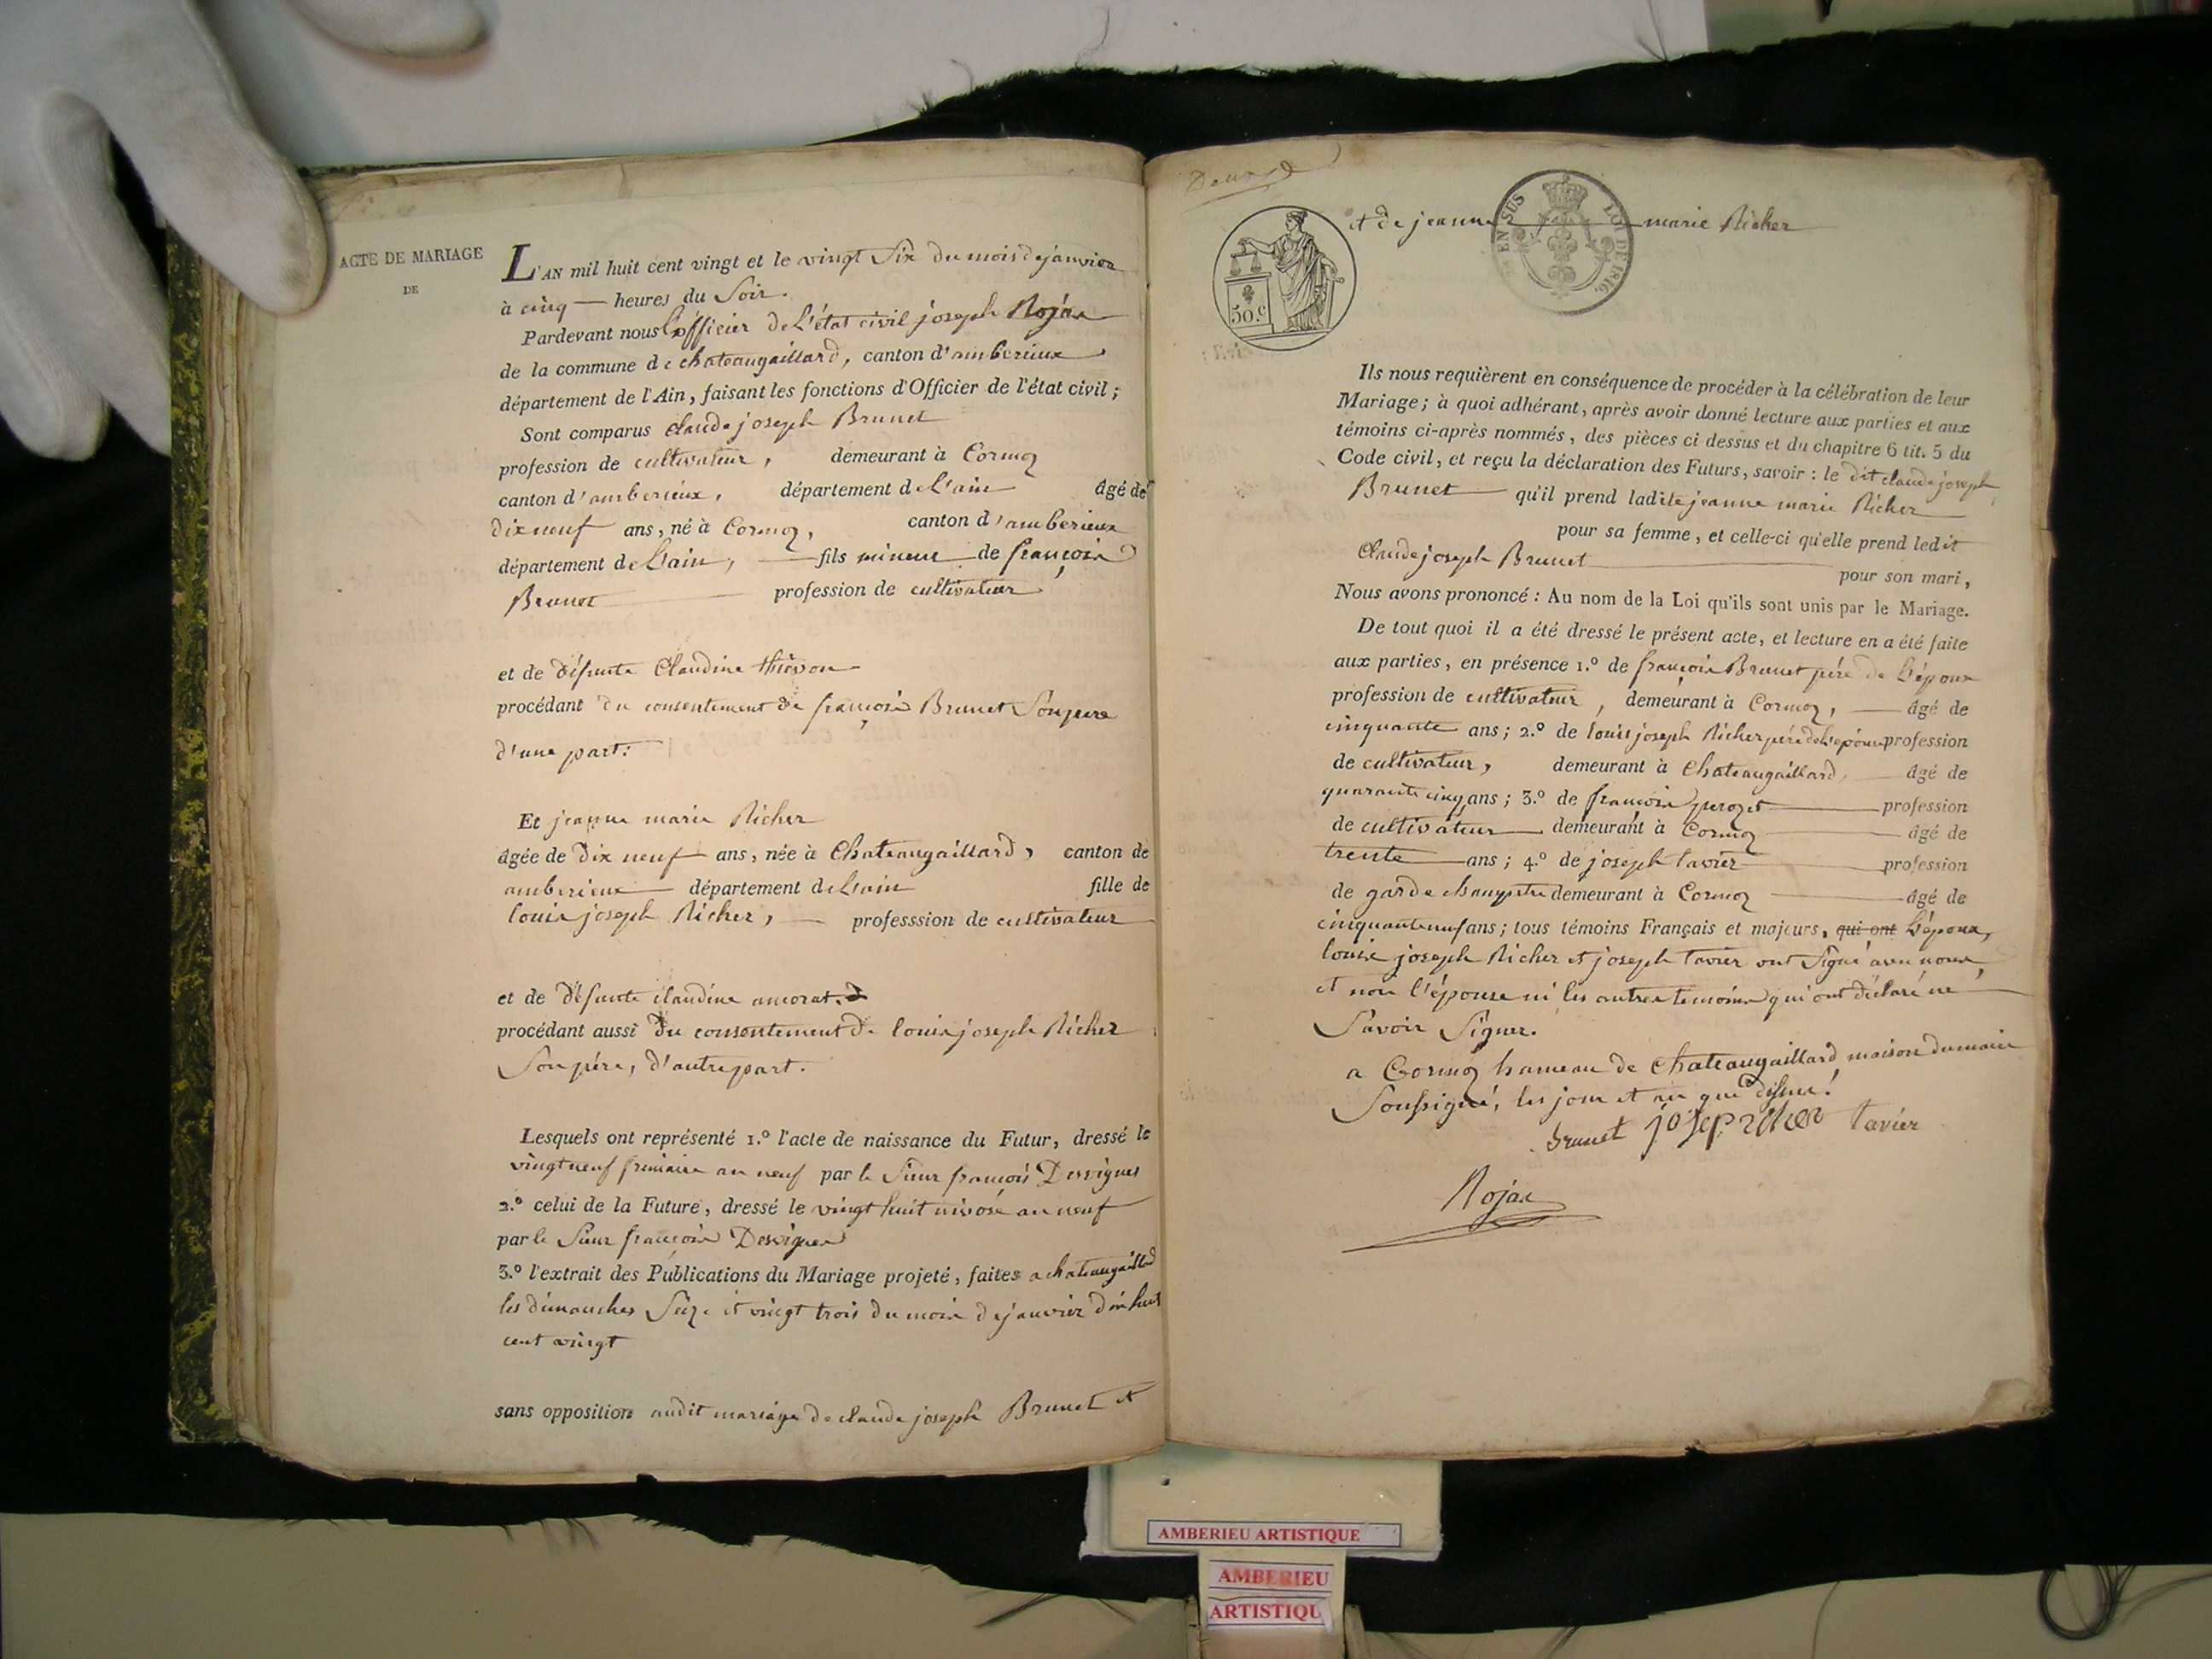 ACTE DE MARIAGE
DE
L'AN mil huit cent vingt et le vingt Six du mois de janvier
à cinq heures du Soir.
Pardevant nous L'officier de L'état civil joseph Rojas
de la commune de chateaugaillard, canton d'amberieux
département de l'Ain, faisant les fonctions d'Officier de l'état civil;
Sont comparus claude joseph Brunet
profession de cultivateur, demeurant à Cormoz
canton d'amberieux, département de L'ain âgé de
dix neuf ans, né à Cormoz, canton d'amberieux
département de L'ain, fils mineur de françois
Brunet profession de cultivateur
et de défunte Claudine thievon
procédant du consentement de françois Brunet Son pere
d'une part:
Et jeanne marie Richer
âgée de dix neuf ans, née à Chateaugaillard, canton de
amberieux département de L'ain fille de
louis joseph Richer, professsion de cultivateur
et de défunte claudine amorat.
procédant aussi du consentement de louis joseph Richer
Son père, d'autre part.
Lesquels ont représenté 1.º l'acte de naissance du Futur, dressé le
vingt neuf frimaire an neuf par le Sieur françois Desvignes
2.º celui de la Future, dressé le vingt huit nivose an neuf
par le Sieur françois Desvignes
3.º l'extrait des Publications du Mariage projeté, faites a chateaugaillard
les dimanches Seize et vingt trois du mois de janvier dix huit
cent vingt
sans opposition audit mariage de claude joseph Brunet et
et de jeanne marie Richer
EN SUS
LOI DE 1816.
50.c
Ils nous requièrent en conséquence de procéder à la célébration de leur
Mariage; à quoi adhérant, après avoir donné lecture aux parties et aux
témoins ci-après nommés, des pièces ci dessus et du chapitre 6 tit. 5 du
Code civil, et reçu la déclaration des Futurs, savoir: le dit claude joseph
Brunet qu'il prend ladite jeanne marie Richer
pour sa femme, et celle-ci qu'elle prend ledit
Claude joseph Brunet pour son mari,
Nous avons prononcé: Au nom de la Loi qu'ils sont unis par le Mariage.
De tout quoi il a été dressé le présent acte, et lecture en a été faite
aux parties, en présence 1.º de françois Brunet père de L'époux
profession de cultivateur, demeurant à Cormoz, âgé de
cinquante ans; 2.º de louis joseph Richer père de L'epouse profession
de cultivateur, demeurant à Chateaugaillard, âgé de
quarante cinq ans; 3.º de françois perozet profession
de cultivateur demeurant à Cormoz âgé de
trente ans; 4.º de joseph tavier profession
de garde champetre demeurant à Cormoz âgé de
cinquante neuf ans; tous témoins Français et majeurs, qui ont L'époux,
louis joseph Richer et joseph tavier ont Signé avec nous,
et non l'épouse ni les autres temoins qui ont déclaré ne
Savoir Signer.
a Cormoz hameau de Chateaugaillard, maison du maire
Soussigné, les jour et an que dessus.
Brunet josep richer tavier
Rojas
AMBERIEU ARTISTIQUE
AMBERIEU
ARTISTIQU